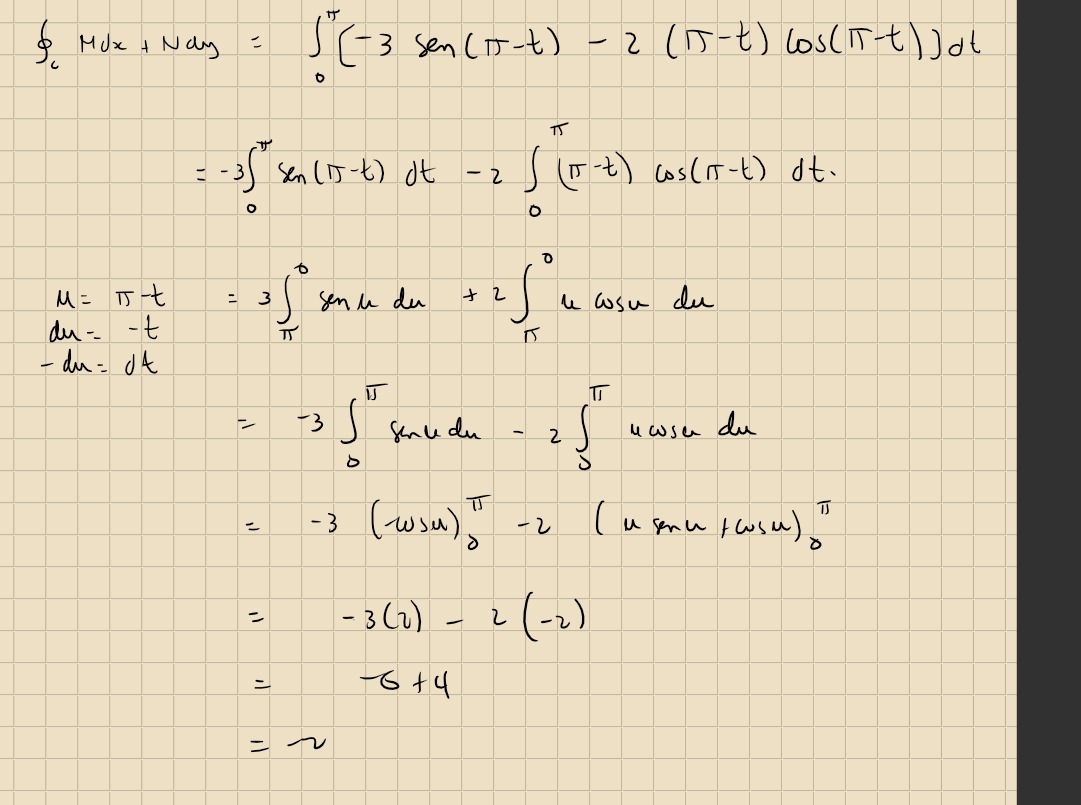 ∮_c Mdx + Ndy = ∫_0^π [-3 sen(π-t) - 2 (π-t) cos(π-t)] dt
= -3∫_0^π sen(π-t) dt - 2 ∫_0^π (π-t) cos(π-t) dt.
u = π-t = 3 ∫_π^0 sen u du + 2 ∫_π^0 u cosu du
du = -t
-du = dt
= -3 ∫_0^π senu du - 2 ∫_0^π u cosu du
= -3 (-cosu)_0^π -2 (u senu + cosu)_0^π
= -3(2) - 2(-2)
= -6+4
= -2